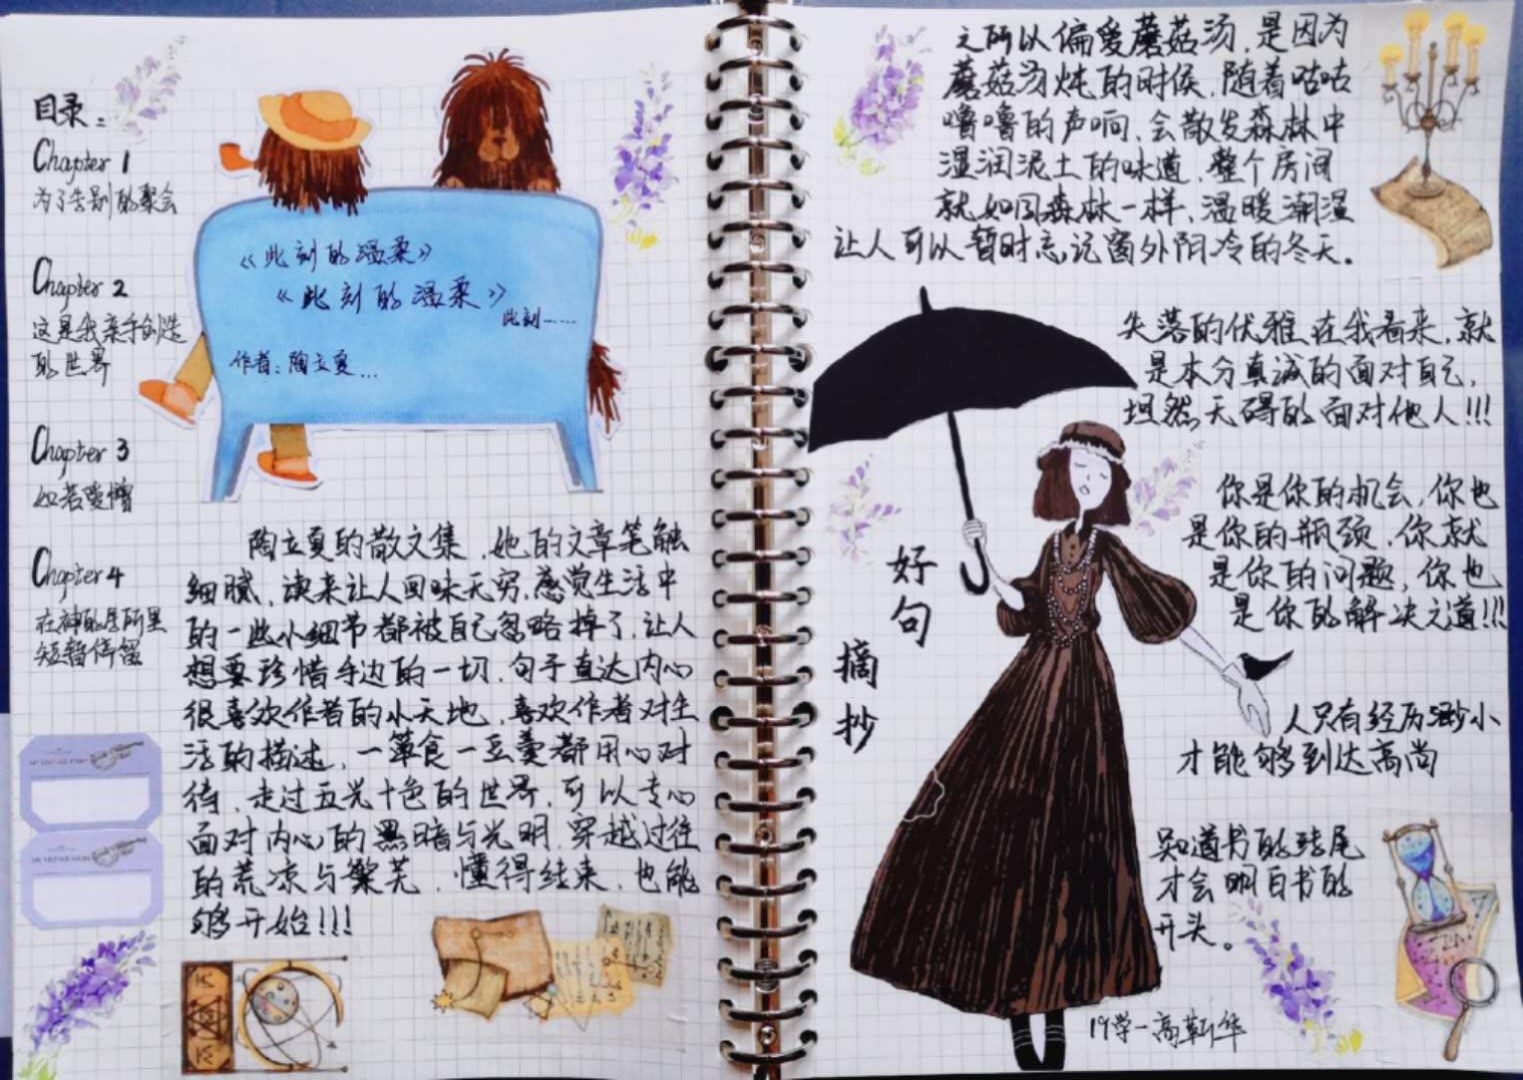 目录：
Chapter 1
为了告别的聚会
Chapter 2
这是我亲手创造
的世界
Chapter 3
如若爱憎
Chapter 4
在神的居所里
短暂停留
《此刻的温柔》
《此刻的温柔》
此刻……
作者：陶立夏...
陶立夏的散文集，她的文章笔触
细腻，读来让人回味无穷，感觉生活中
的一些小细节都被自己忽略掉了，让人
想要珍惜手边的一切，句子直达内心
很喜欢作者的小天地，喜欢作者对生
活的描述，一箪食一豆羹都用心对
待，走过五光十色的世界，可以专心
面对内心的黑暗与光明，穿越过往
的荒凉与繁芜，懂得结束，也能
够开始!!!
之所以偏爱蘑菇汤，是因为
蘑菇汤炖的时候，随着咕咕
噜噜的声响，会散发森林中
湿润泥土的味道，整个房间
就如同森林一样，温暖潮湿
让人可以暂时忘记窗外阴冷的冬天。
失落的优雅，在我看来，就
是本分真诚的面对自己，
坦然无碍的面对他人!!!
你是你的机会，你也
是你的瓶颈，你就
是你的问题，你也
是你的解决之道!!!
好句
摘抄
人只有经历渺小
才能够到达高尚
知道书的结尾
才会明白书的
开头。
19学一高